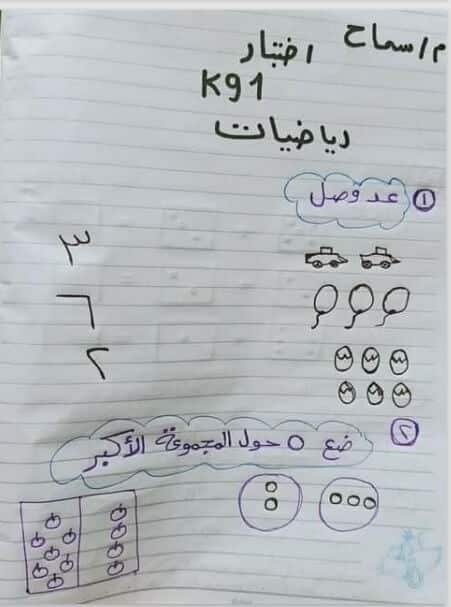 م/سماح
اختبار
K91
رياضيات
١ عد وصل
٣
٦
٢
٢ ضع O حول المجموعة الأكبر